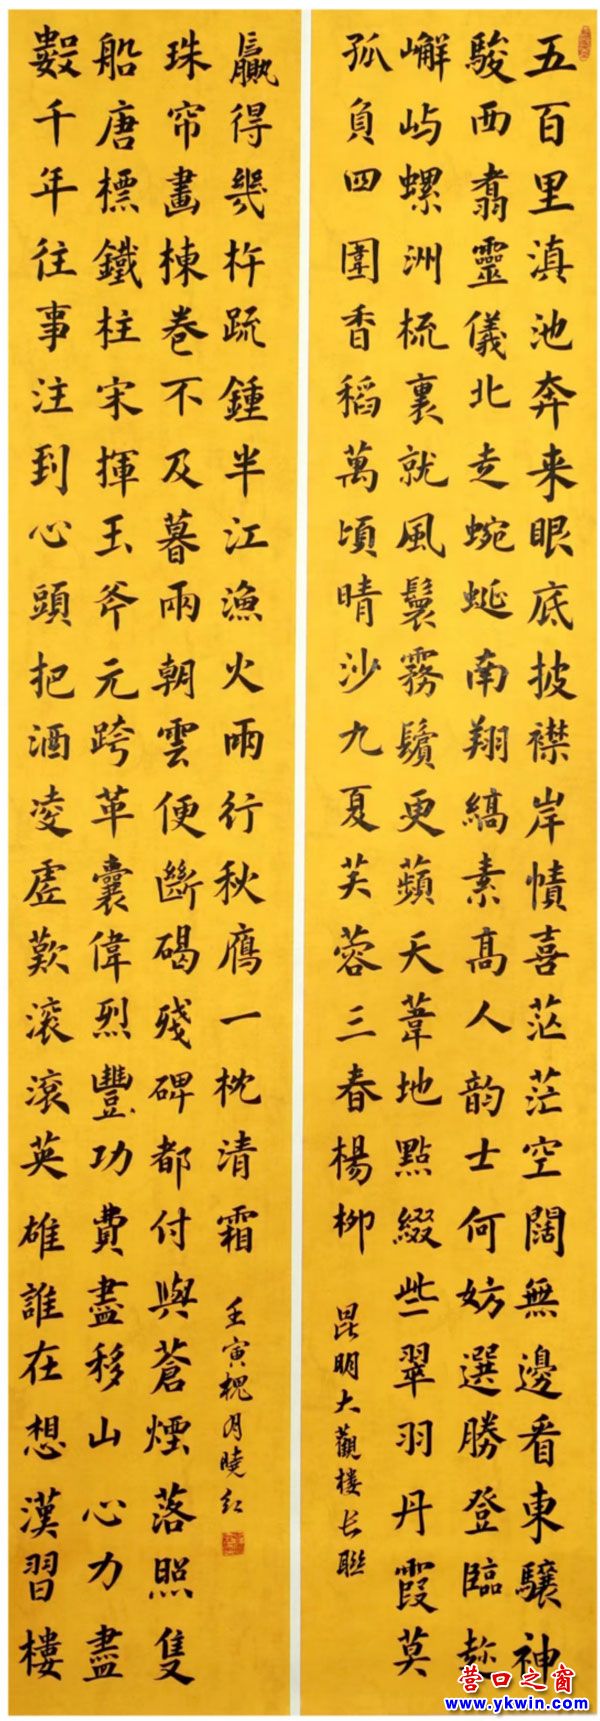 五百里滇池奔来眼底披襟岸幘喜茫茫空闊無邊看東驤神
駿西翥靈儀北走蜿蜒南翔縞素高人韵士何妨選勝登臨趂
嶰屿螺洲梳裏就風鬟霧鬢更蘋天葦地點綴些翠羽丹霞莫
孤負四圍香稻萬頃晴沙九夏芙蓉三春楊柳
昆明大觀樓长聯
數千年往事注到心頭把酒凌虛歎滚滚英雄誰在想漢習樓
船唐標鐵柱宋揮玉斧元跨革囊偉烈豐功費盡移山心力盡
珠帘畫棟卷不及暮雨朝雲便斷碣殘碑都付與蒼煙落照隻
贏得幾杵疏鍾半江漁火兩行秋鴈一枕清霜
壬寅槐月曉红
营口之窗
www.ykwin.com